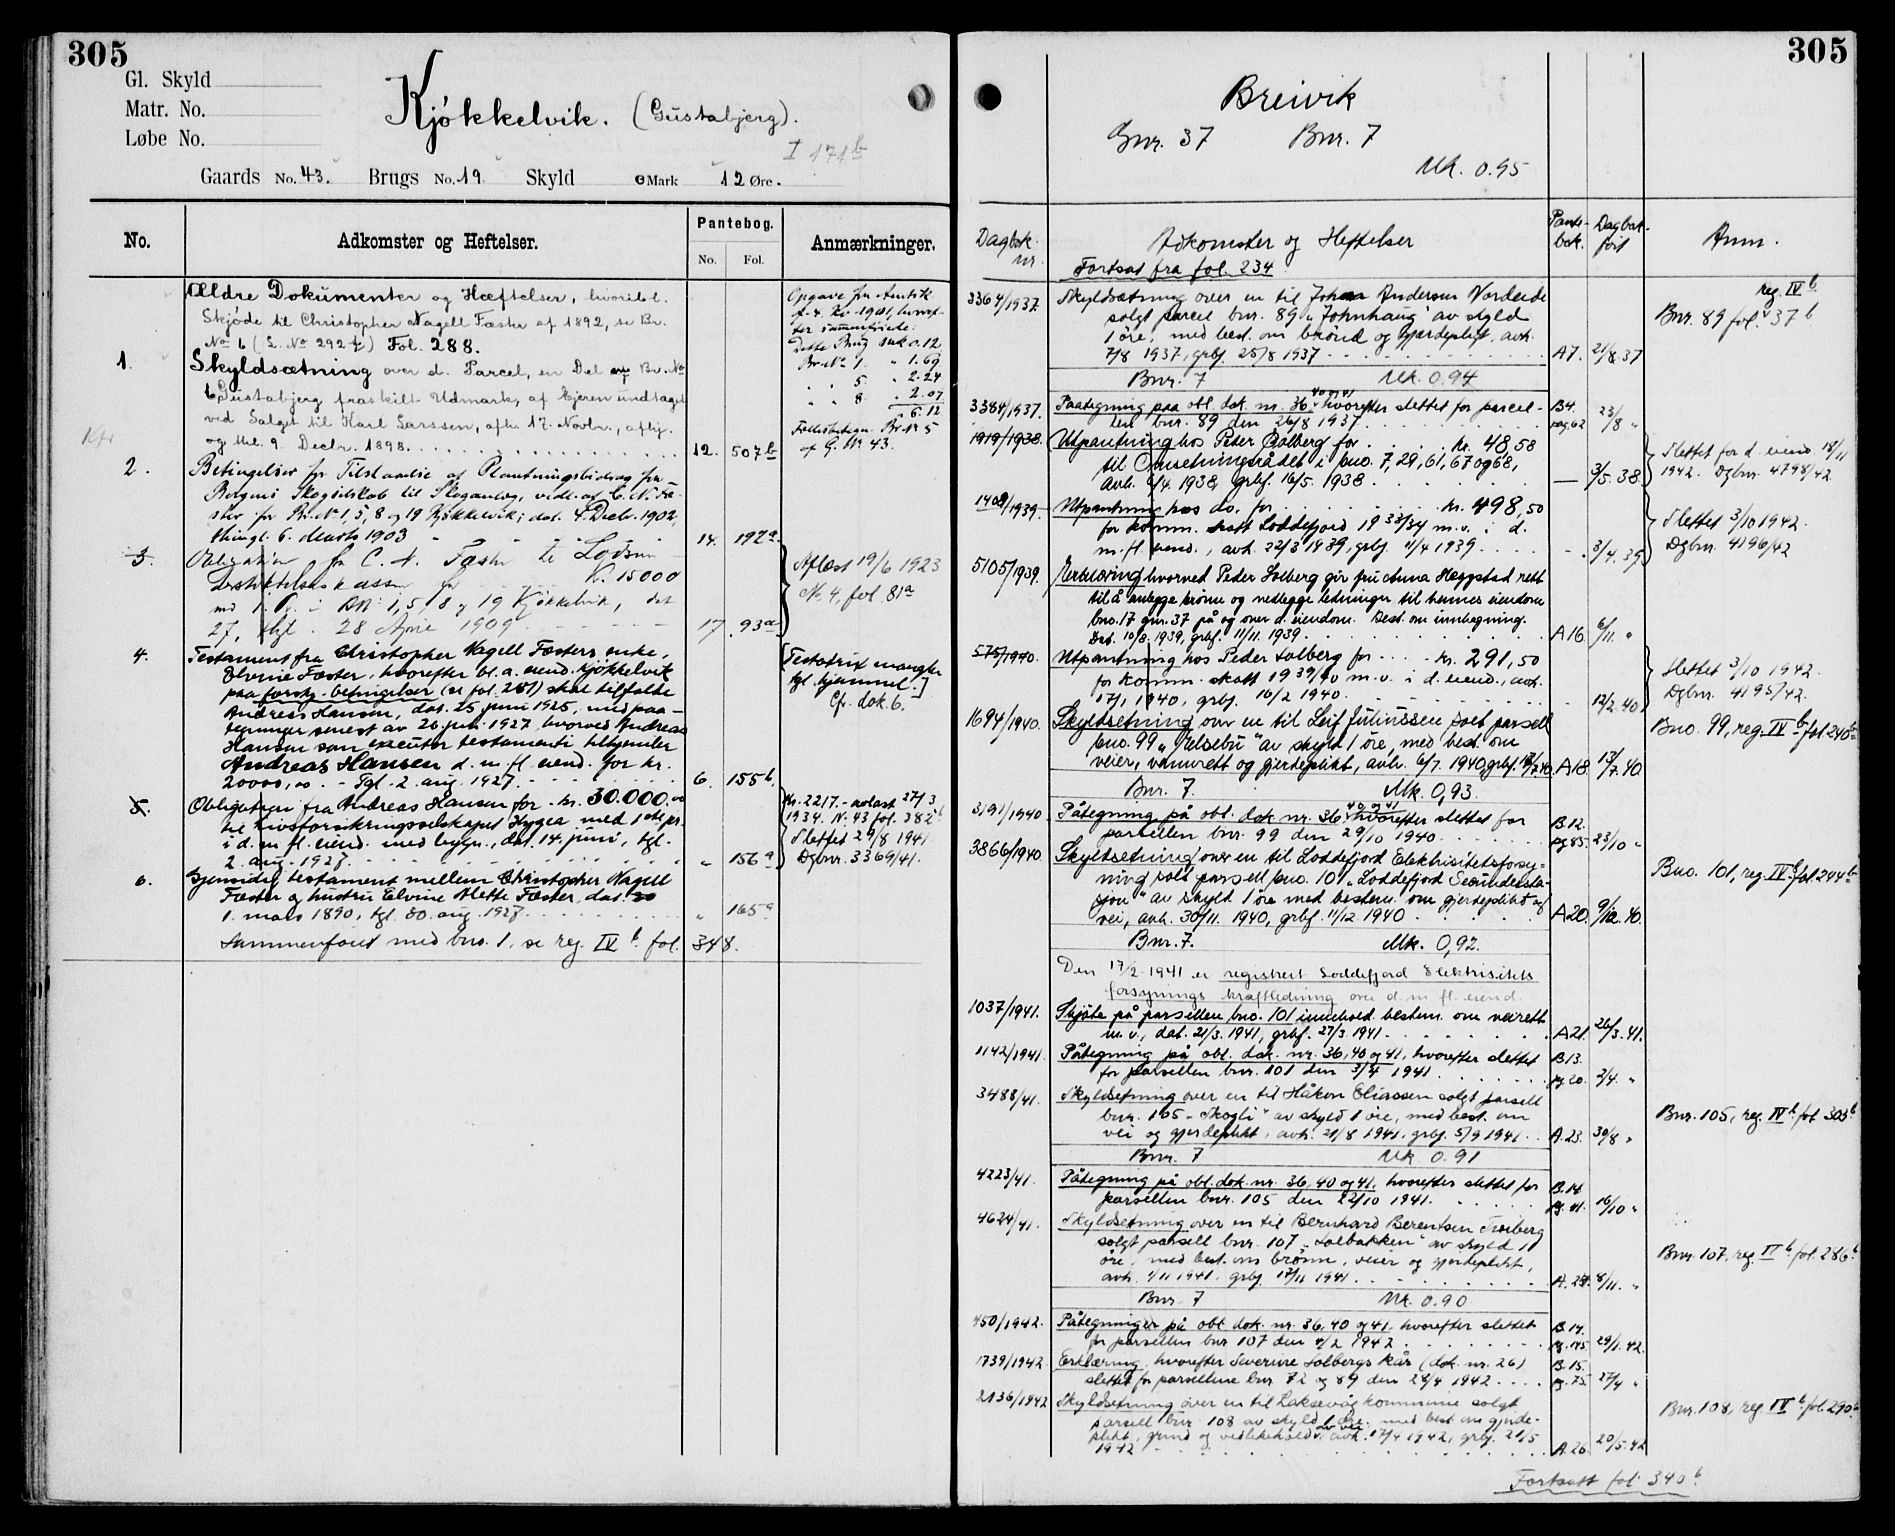 305
Gl. Skyld
Matr. No.
Løbe No.
Kjøkkelvik. (Gustabjerg).
I 171 b
Gaards No. 43. Brugs No. 19 Skyld Mark 12 Øre.
No. Adkomster og Heftelser. Pantebog. Anmærkninger.
No. Fol.
Ældre Dokumenter og Hæftelser, hvoriblt.
Skjøde til Christopher Nagell Fæster af 1892, se Br.
No 6 (L. No 292) Fol. 288.
1. Skyldsætning over d. Parcel, en Del Br. No
6 Gustabjerg fraskilt Udmark, af Ejeren undtaget
ved Salget til Karl Larssen, afh. 17. Novbr., afhj.
og thl. 9. Decbr. 1898. 12. 507 b
Opgave fra Amtsk.
f. 4. Kv. 1901, hvoref-
ter sammenføiede:
Dette Brug sk. 0.12
Br. No 1. " 1.69
" " 5. " 2.24
" " 8. " 2.07
6.12
Fællesbetegn. Br. No 5
af G. No 43.
2. Betingelser for Tilstaaelse af Plantningsbidrag fra
Bergens Skogselskab til Skoganlæg, vedt. af C. N. Fæ-
ster for Br. No 1, 5, 8 og 19 Kjøkkelvik; dat. 4. Decbr. 1902,
thingl. 6. Marts 1903 14. 192 a
3. Obligation fra C. N. Fæster til Lods-
distriktskassen for K. 15000
med 1. Pr. i BN. 1, 5, 8 og 19 Kjøkkelvik, dat.
27, thgl. 28 April 1909 17. 93 a
Aflæst 19/6 1923
No 4, fol. 81 a
4. Testament fra Christopher Nagell Fæsters enke,
Elvine Fæster, hvorefter bl. a. eiend. Kjøkkelvik
paa forskj. betingelser (se fol. 281) skal tilfalde
Andreas Hansen, dat. 25 juni 1925, med paa-
tegninger senest av 20 juli 1927, hvorved Andreas
Hansen som executor testamenti tilhjemler
Andreas Hansen d. m. fl. eiend. for kr.
20000,00. - Tgl. 2. aug. 1927. 6. 155 b
[Testatrix mangler
tgl. hjemmel.]
Cfr. dok. 6.
5. Obligation fra Andreas Hansen for kr. 30.000.00
til Livsforsikringsselskapet Hygea med 1ste pr.
i d. m. fl. eiend. med bygn., dat. 14. juni, tgl.
2. aug. 1927. " 156 a
Kr. 2217.- avlast 27/3
1934. N. 43 fol. 382 b
Slettet 29/8 1941.
Dgbnr. 3369/41.
6. Gjensidig testament mellem Christopher Nagell
Fæster og hustru Elvine Mette Fæster, dat.
1. mars 1890, tgl. 30. aug. 1927. " 165 a
Sammenføiet med bno. 1, se reg. IV b. fol. 348.
305
Breivik
Gnr. 37 Bnr. 7
Mk. 0.95
Dagbok nr. Adkomster og Heftelser Pante-bok. Dagbok-ført Anm.
Fortsat fra fol. 234
3364/1937. Skyldsætning over en til Johan Andersen Nordeide
solgt parcel bnr. 89 "Johnhaug" av skyld
1 øre, med best. om brønd og gjerdepligt, avh.
7/8 1937, grbf. 25/8 1937 A7. 21/8.37
reg. IV b
Bnr. 89 fol. 37 b
Bnr. 7 Mk. 0.94
3384/1937. Paategning paa obl. dok. nr. 36, 40 og 41 hvorefter slettet for parcel-
len bnr. 89 den 26/8 1937. B4. pag. 62 23/8 "
1919/1938. Utpantning hos Peder Solberg for kr. 48,50
til Omsetningsrådet i bno. 7, 29, 61, 67 og 68,
avh. 6/4. 1938, grbf. 16/5. 1938 — 3/5.38.
Slettet for d. eiend. 18/11
1942. Dgbnr. 4798/42
1408/1939. Utpantning hos do. for kr. 498,50
for komm. skatt Loddefjord 1933/34 m. v. i d.
m. fl. eiend., avh. 22/3 1939, grbf. 11/4 1939 3/4.39
Slettet 3/10 1942.
Dgbnr. 4196/42
5105/1939. Erklæring hvorved Peder Solberg gir fru Anna Heggstad rett
til å anlegge brønn og nedlegge ledninger til hennes eiendom
bno. 17 gnr. 37 på og over d. eiendom. Best. om innhegning.
Dat. 10/8. 1939, grbf. 11/11. 1939 A16. 6/11. "
575/1940. Utpantning hos Peder Solberg for kr. 291,50
for komm. skatt 1939/40 m. v. i d. eiend., avh.
17/1 1940, grbf. 16/2 1940. 12/2.40
Slettet 3/10 1942.
Dgbnr. 4195/42.
1694/1940. Skyldsetning over en til Leif Juliussen solt parsell
bno. 99 "Elsebu" av skyld 1 øre, med best. om
veier, vannrett og gjerdeplikt, avh. 6/7. 1940, grbf. A18. 13/7.40
Bno. 99, reg. IV b fol. 240 b
Bnr. 7. Mk. 0,93.
3191/1940 Påtegning på obl. dok. nr. 36, 40 og 41 hvorefter slettet for
parsellen bnr. 99 den 29/10 1940. B.12. pg 85. 23/10 "
3866/1940 Skyldsetning over en til Loddefjord Elektrisitetsforsy-
ning solt parsell bno. 101 "Loddefjord Sekundærsta-
sjon" av skyld 1 øre med bestem. om gjerdeplikt og
vei, avh. 30/11. 1940, grbf. 11/12 1940 A20. 9/12.40.
Bno. 101, reg. IV b fol. 244 b
Bnr. 7. Mk. 0,92.
Den 17/2 1941 er registrert Loddefjord Elektrisitets
forsynings kraftledning over d. m. fl. eiend.
1037/1941. Skjøte på parsellen bno. 101 innehold. bestem. om veirett
m. v., dat. 21/3. 1941, grbf. 27/3. 1941 A21. 26/3.41.
1142/1941. Påtegning på obl. dok. nr. 36, 40 og 41, hvorefter slettet
for parsellen bnr. 101 den 3/4 1941. B13. pg. 20. 2/4. "
3488/41. Skyldsetning over en til Håkon Eliassen solgt parsell
bnr. 105 "Skogli" av skyld 1 øre, med best. om
vei og gjerdeplikt, avh. 21/8 1941, grbf. 5/9 1941 A.23. 30/8 "
Bnr. 105, reg. IV b. fol. 303 b
Bnr. 7 Mk. 0.91
4223/41. Påtegning på obl. dok. nr. 36, 40 og 41, hvorefter slettet for
parsellen bnr. 105 den 22/10 1941. B.14 16/10 "
4624/41. Skyldsetning over en til Bernhard Berentsen
solgt parsell bnr. 107 "Solbakken" av skyld 1
øre, med best. om brønn, veier og gjerdeplikt,
avh. 1/11 1941, grbf. 17/11 1941 A.24. 8/11. "
Bnr. 107, reg. IV b. fol. 286 b
Bnr. 7 Mk. 0.90
450/1942. Påtegninger på obl. dok. nr. 36, 40 og 41, hvorefter slettet
for parsellen bnr. 107 den 4/2 1942 B.14. pg. 145 29/1.42.
1739/1942. Erklæring, hvorefter Severine Solbergs kår (dok. nr. 26)
slettet for parsellene bnr. 72 og 89 den 28/4 1942 B.15. pg. 75 27/4 "
2136/1942 Skyldsetning over en til Laksevåg kommune solgt
parsell bnr. 108 av skyld 1 øre, med best. om gjerde-
plikt, grind og vedlikehold av vei, avh. 17/4 1942, grbf. 21/5
1942 A.26 20/5.42
Bnr. 108, reg. IV b. fol. 290 b
Fortsatt fol. 340 b.